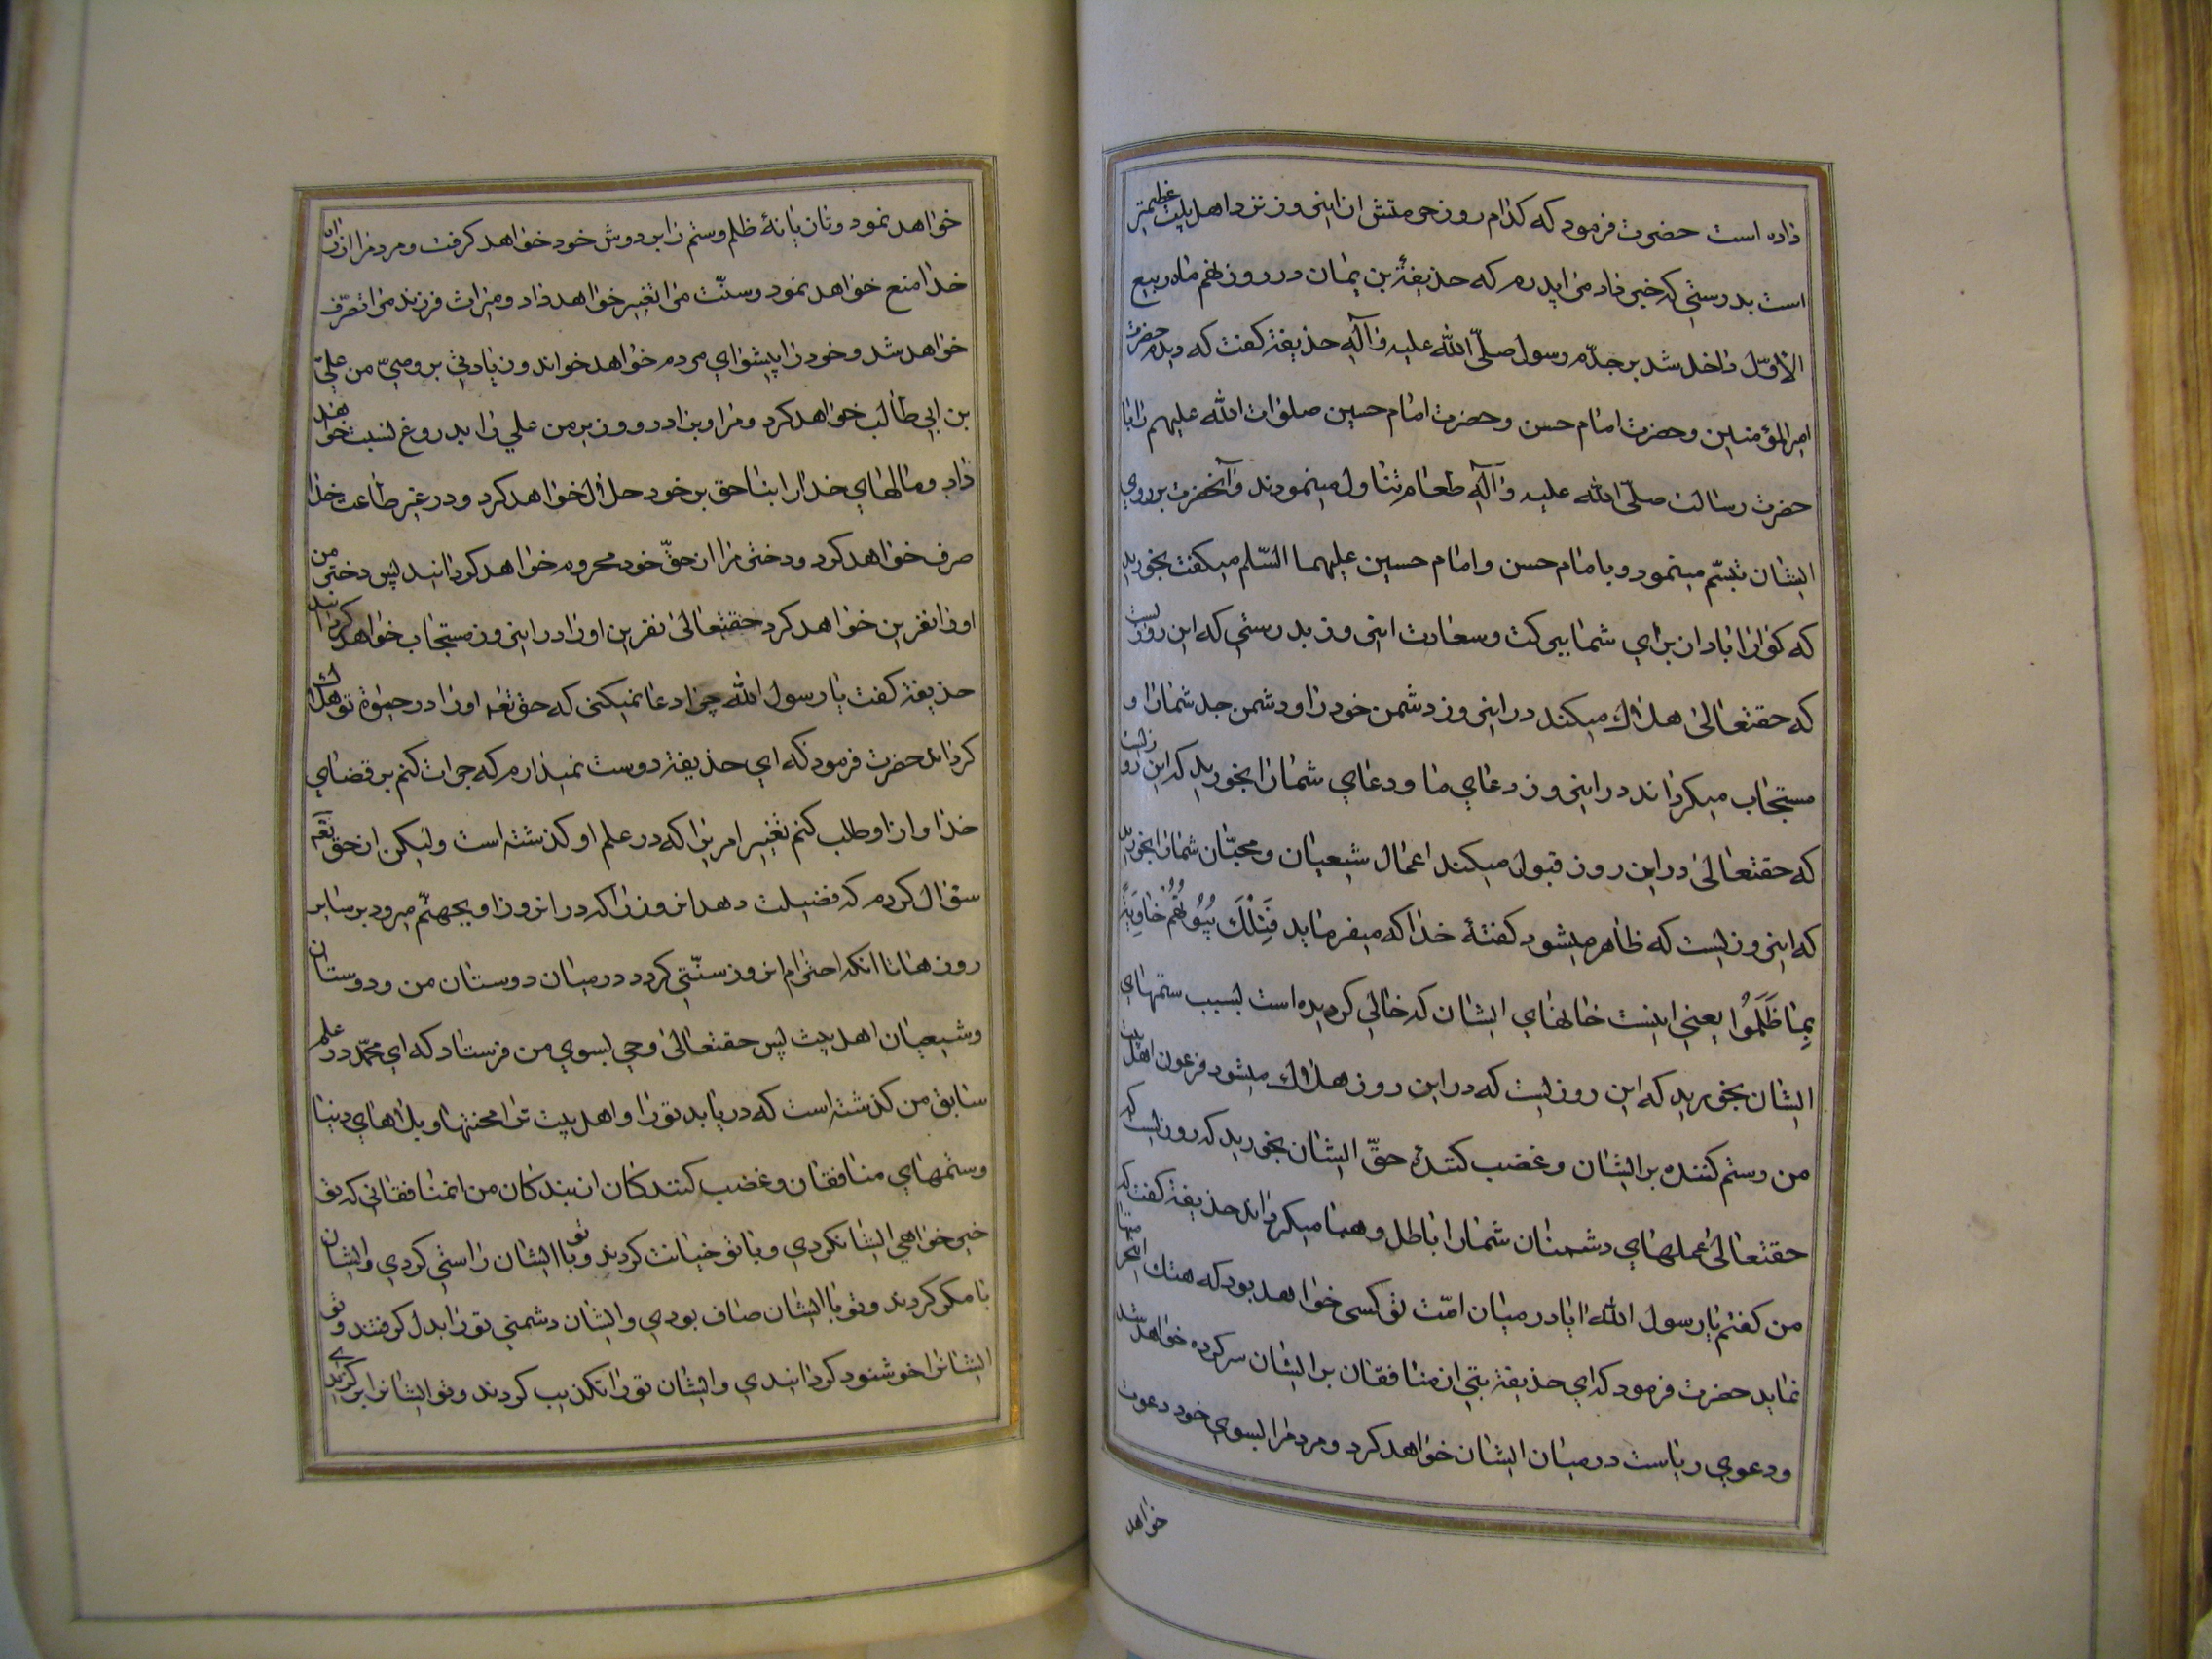 داده است حضرت فرمود که کدام روز حرمتش از اینروز نزد اهل بیت عظیمتر
است بدرستی که خبر داد مرا پدرم که حذیفة بن یمان در روز نهم ماه ربیع
الاوّل داخل شد بر جدّم رسول صلّی الله علیه وآله حذیفة کفت که دیدم حضرت
امیرالمؤمنین وحضرت امام حسن وحضرت امام حسین صلوات الله علیهم را با
حضرت رسالت صلّی الله علیه وآله طعام تناول مینمودند وآنحضرت بر روی
ایشان تبسّم مینمود و با امام حسن وامام حسین علیهما السّلم میکفت بخورید
که کوارا باد از برای شما ببرکت وسعادت اینروز بدرستی که این روزیست
که حقتعالی هلاک میکند در اینروز دشمن خود را و دشمن جد شما را و
مستجاب میکرداند در اینروز دعای ما ودعای شما را بخورید که این روزیست
که حقتعالی در این روز قبول میکند اعمال شیعیان ومحبّان شما را بخورید
که اینروزیست که ظاهر میشود کفتهٔ خدا که میفرماید فَتِلْكَ بُيُوتُهُمْ خَاوِيَةً
بِمَا ظَلَمُوا یعنی اینست خانهای ایشان که خالی کردیده است بسبب ستمهای
ایشان بخورید که این روزیست که در این روز هلاک میشود فرعون اهل بیت
من وستم کننده بر ایشان وغضب کنندهٔ حقّ ایشان بخورید که روزیست که
حقتعالی عملهای دشمنان شما را باطل وهبا میکرداند حذیفة کفت که
من کفتم یا رسول الله ایا در میان امّت تو کسی خواهد بود که هتك این حرمتها
نماید حضرت فرمود که ای حذیفة بتی از منافقان بر ایشان سرکرده خواهد شد
ودعوی ریاست در میان ایشان خواهد کرد ومردم را بسوی خود دعوت
خواهد
خواهد نمود وتازیانهٔ ظلم وستم را بر دوش خود خواهد کرفت ومردم را از راه
خدا منع خواهد نمود وسنّت مرا تغییر خواهد داد ومیراث فرزند مرا متصرّف
خواهد شد وخود را پیشوای مردم خواهد خواند وزیادتی بر وصیّ من علیّ
بن ابی طالب خواهد کرد ومرا وبرادر ووزیر من علی را بدروغ نسبت خواهد
داد ومالهای خدا را بناحق بر خود حلال خواهد کرد ودر غیر طاعت خدا
صرف خواهد کرد ودختر مرا از حقّ خود محروم خواهد کردانید پس دختر من
او را نفرین خواهد کرد حقتعالی نفرین او را در اینروز مستجاب خواهد کردانید
حذیفة کفت یا رسول الله چرا دعا نمیکنی که حق تعه او را در حیوة تو هلاک
کرداند حضرت فرمود که ای حذیفة دوست نمیدارم که جرات کنم بر قضای
خدا واز او طلب کنم تغییر امریرا که در علم او کذشته است ولیکن از حق تعه
سؤال کردم که فضیلت دهد انروز را که در انروز او بجهنّم میرود بر سایر
روزها تا انکه احترام انروز سنّتی کردد در میان دوستان من ودوستان
وشیعیان اهل بیت پس حقتعالی وحی بسوی من فرستاد که ای محمّد در علم
سابق من کذشته است که دریابد تو را واهل بیت ترا محنتها وبلاهای دنیا
وستمهای منافقان وغضب کنندکان از بندکان من انمنافقانی که تو
خیرخواهی ایشان کردی وبا تو خیانت کردند وتو با ایشان راستی کردی وایشان
با مکر کردند وتو با ایشان صاف بودی وایشان دشمنی تو را بدل کرفتند وتو
ایشانرا خوشنود کردانیدی وایشان تو را تکذیب کردند وتو ایشانرا برکزیدی